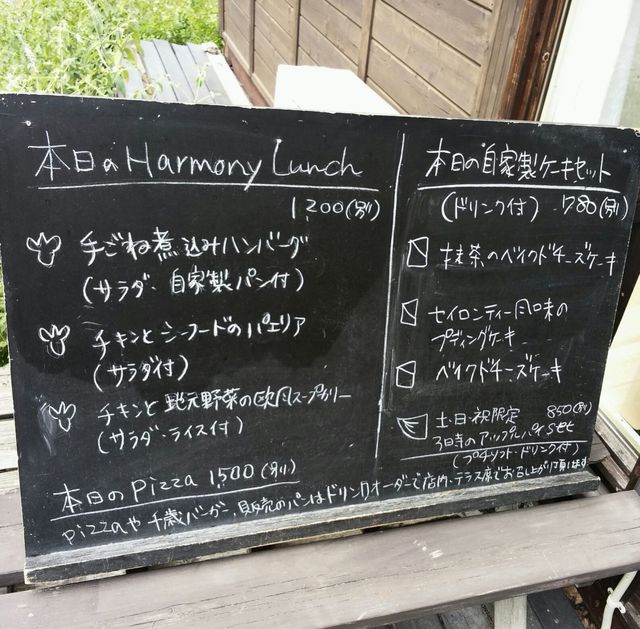 本日のHarmony Lunch
1,200(別)
手ごね煮込みハンバーグ
(サラダ・自家製パン付)
チキンとシーフードのパエリア
(サラダ付)
チキンと地元野菜の欧風スープカリー
(サラダ・ライス付)
本日のPizza 1,500(別)
本日の自家製ケーキセット
(ドリンク付) 780(別)
抹茶のベイクドチーズケーキ
セイロンティー風味の
プディングケーキ
ベイクドチーズケーキ
土・日・祝限定 850(別)
3日時のアップルパイSet
(プチソフト・ドリンク付)
pizzaや千歳バーガー、販売のパンはドリンクオーダーで店内・テラス席でお召し上がり頂けます